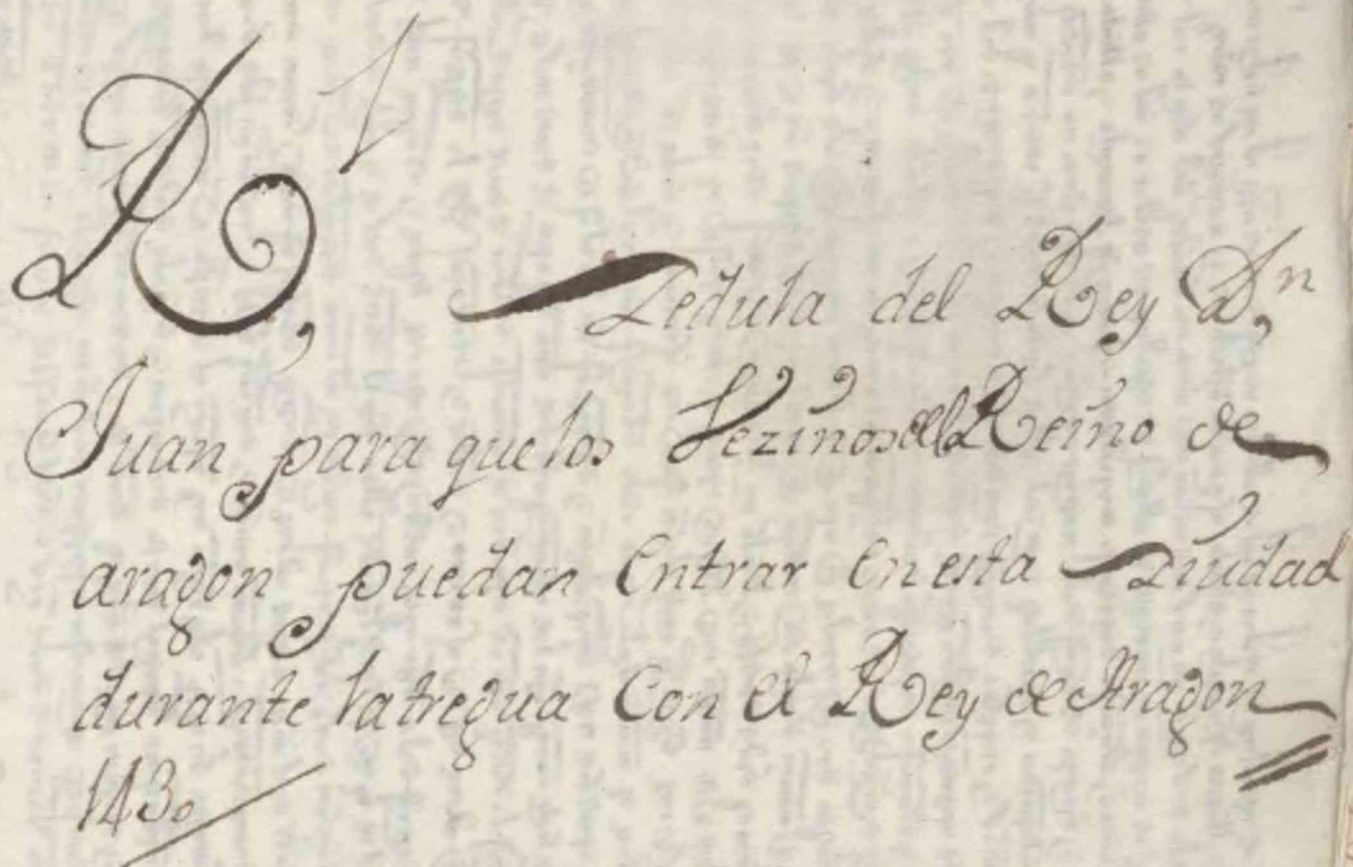 R,l
Zedula del Rey Dn,
Juan para que los Vezinos del Reino de
aragon puedan Entrar En esta Ziudad
durante la tregua Con el Rey de Aragon
1430